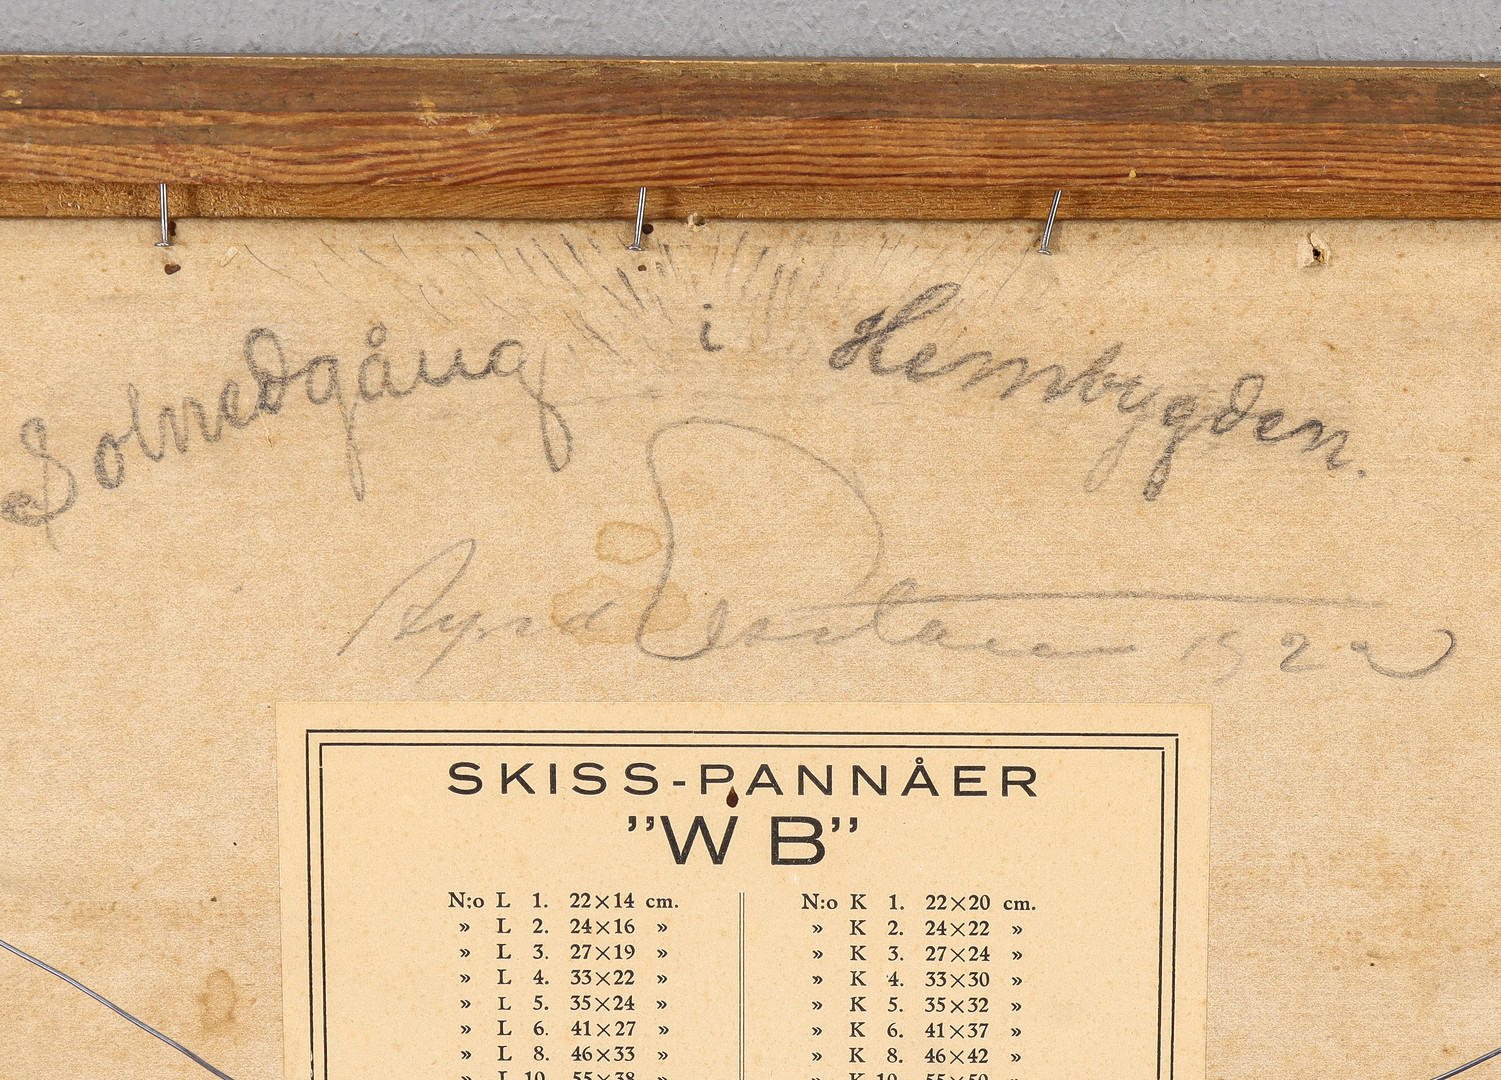 Solnedgång i Hembygden.
192
SKISS-PANNÅER
”W B”
N:o L 1. 22×14 cm.
» L 2. 24×16 »
» L 3. 27×19 »
» L 4. 33×22 »
» L 5. 35×24 »
» L 6. 41×27 »
» L 8. 46×33 »
» L 10. 55×38 »
N:o K 1. 22×20 cm.
» K 2. 24×22 »
» K 3. 27×24 »
» K 4. 33×30 »
» K 5. 35×32 »
» K 6. 41×37 »
» K 8. 46×42 »
» K 10. 55×50 »